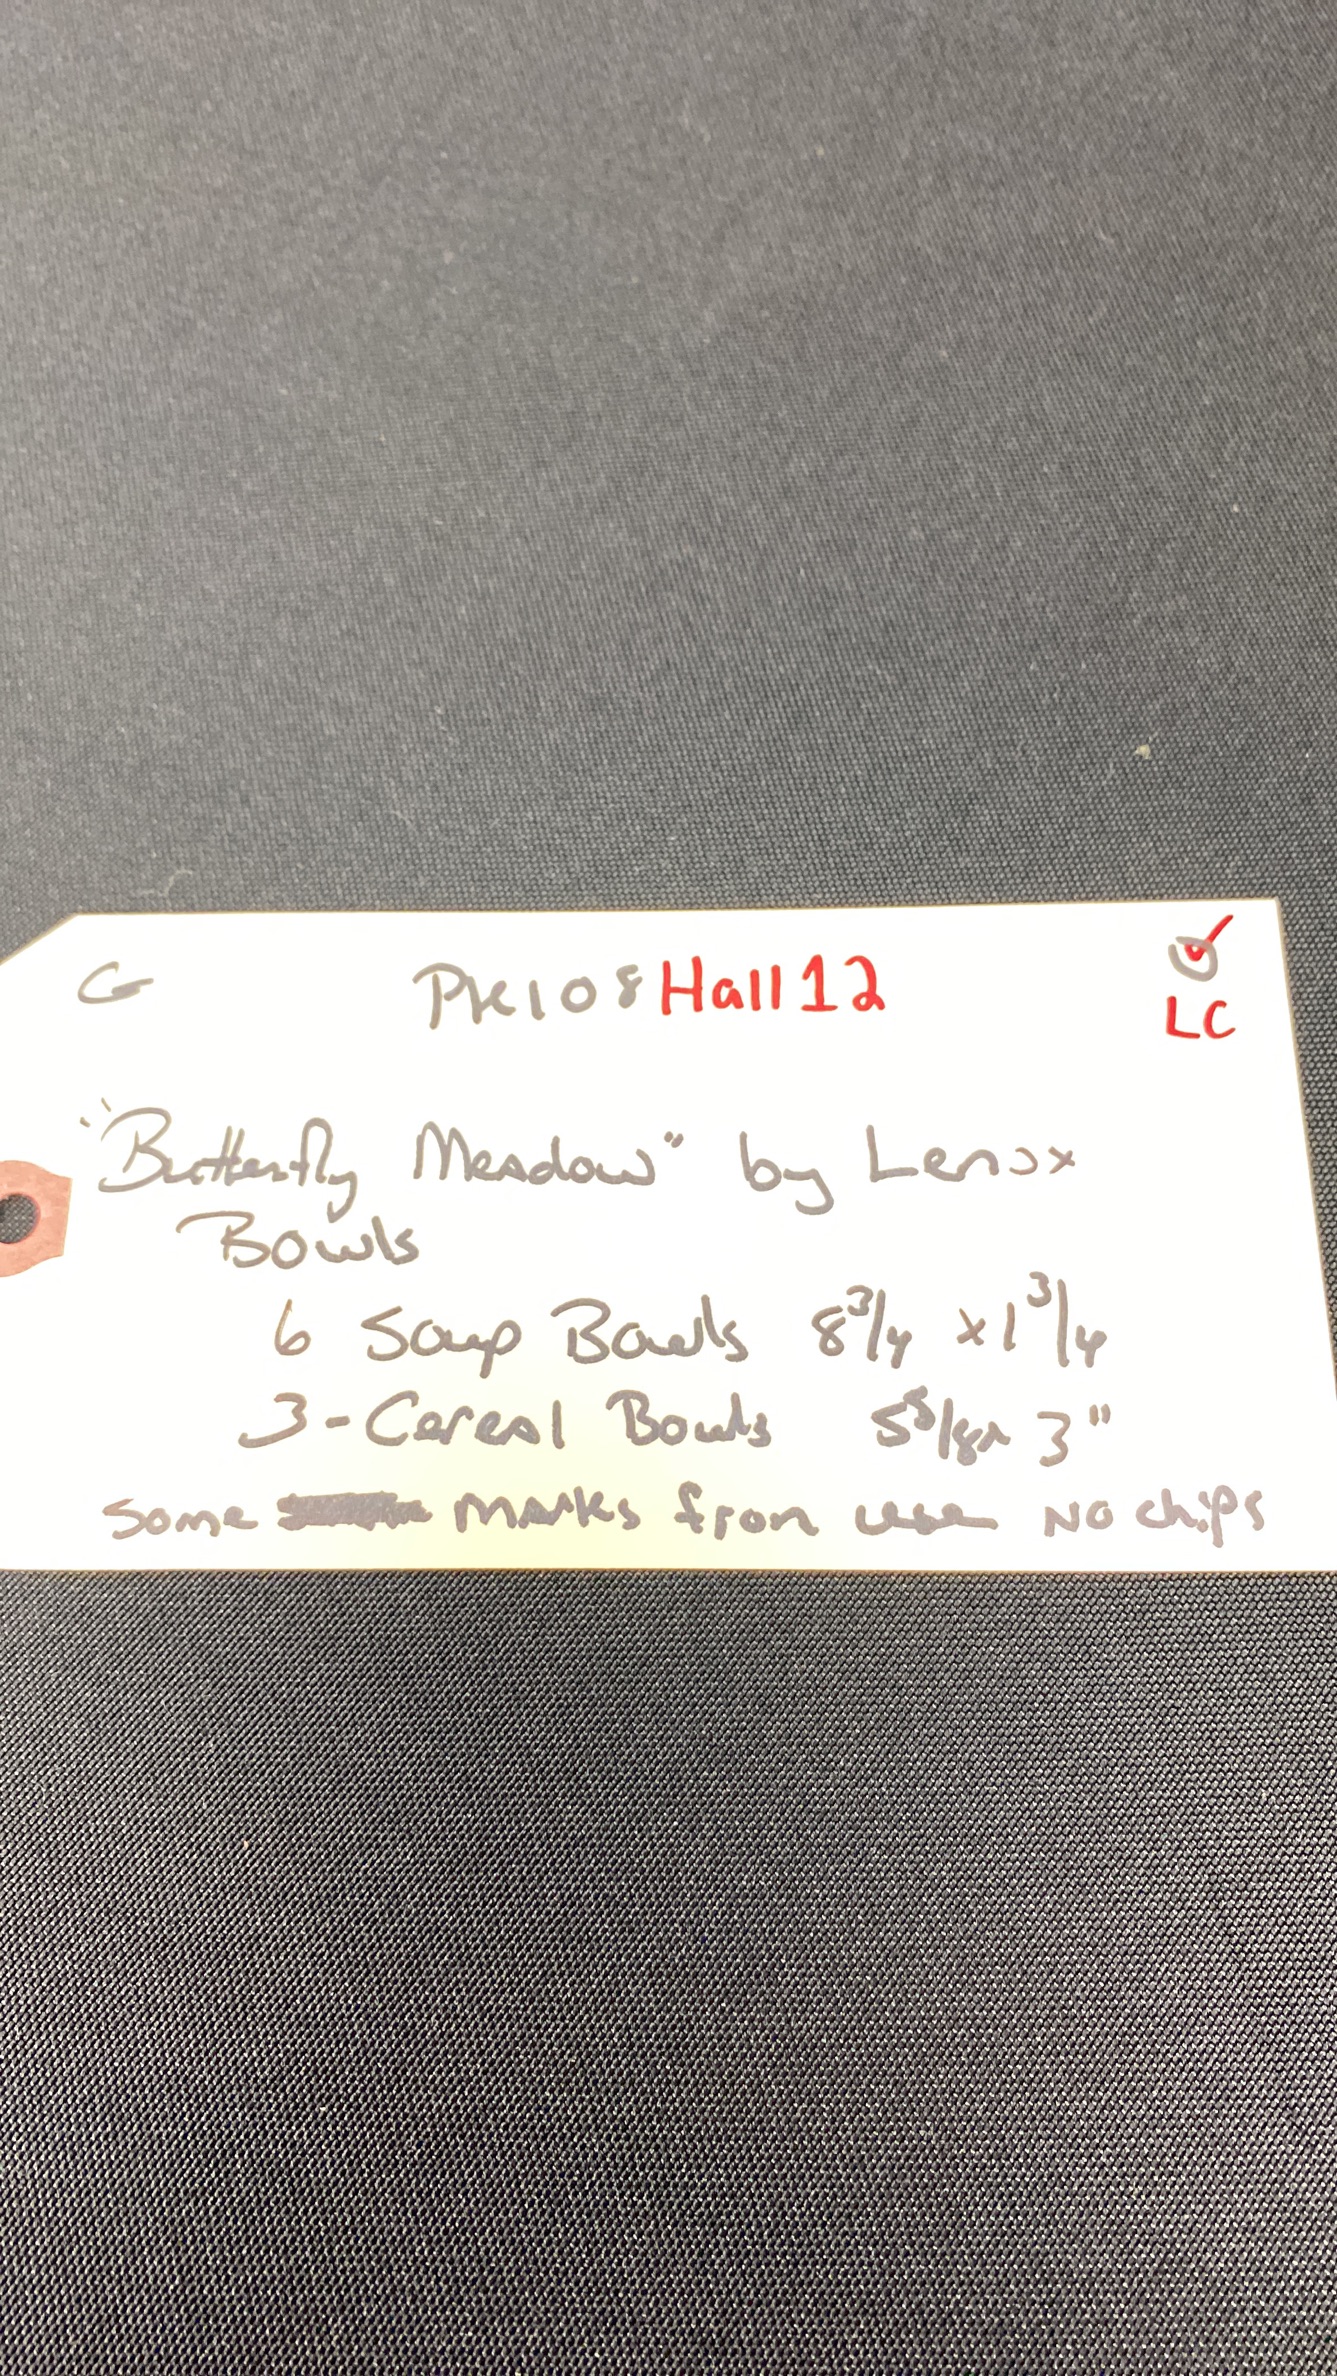 G PK108 Hall 12
LC
"Butterfly Meadow" by Lenox
Bowls
6 Soup Bowls 8 3/4 x 1 3/4
3-Cereal Bowls 5 5/8 x 3"
Some marks from use NO chips